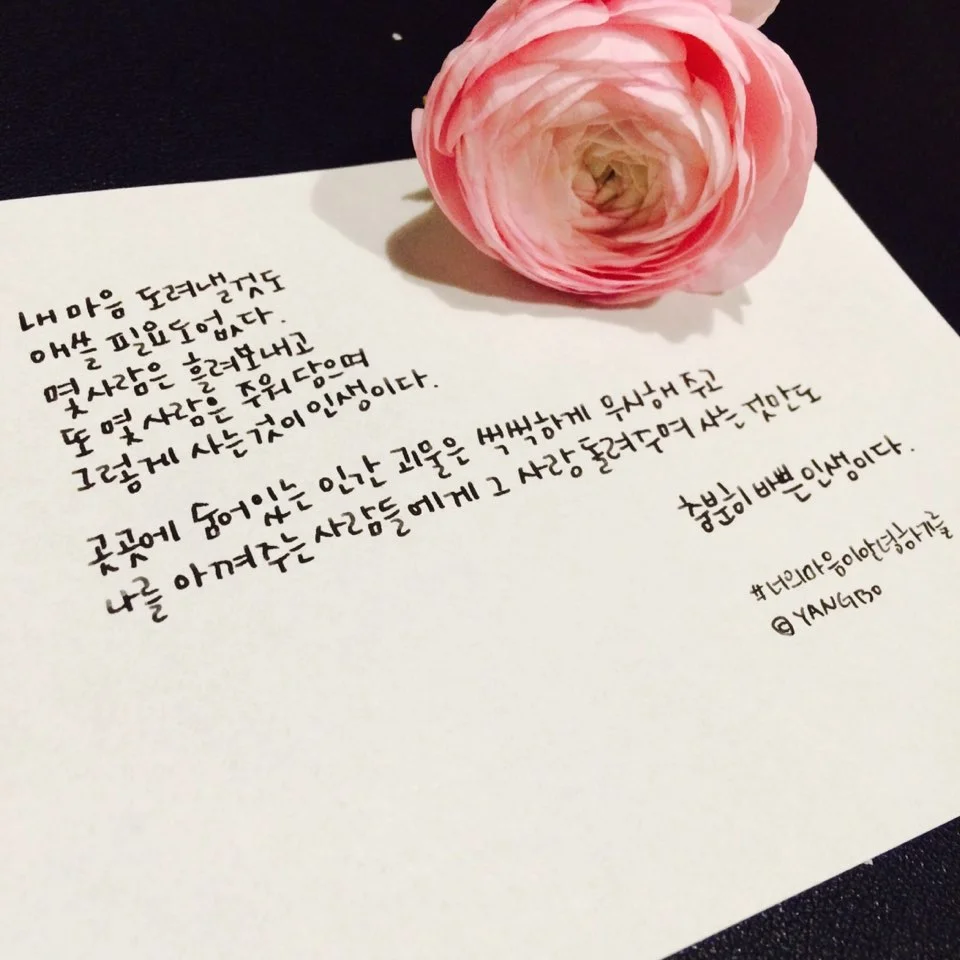 내 마음 도려낼것도
애쓸 필요도없다.
몇사람은 흘려보내고
또 몇 사람은 주워담으며
그렇게 사는것이인생이다.
곳곳에 숨어있는 인간 괴물은 씩씩하게 무시해 주고
나를 아껴주는사람들에게 그 사랑 돌려주며 사는 것만도
충분히바쁜인생이다.
#너의마음이안녕하기를
@YANGBO